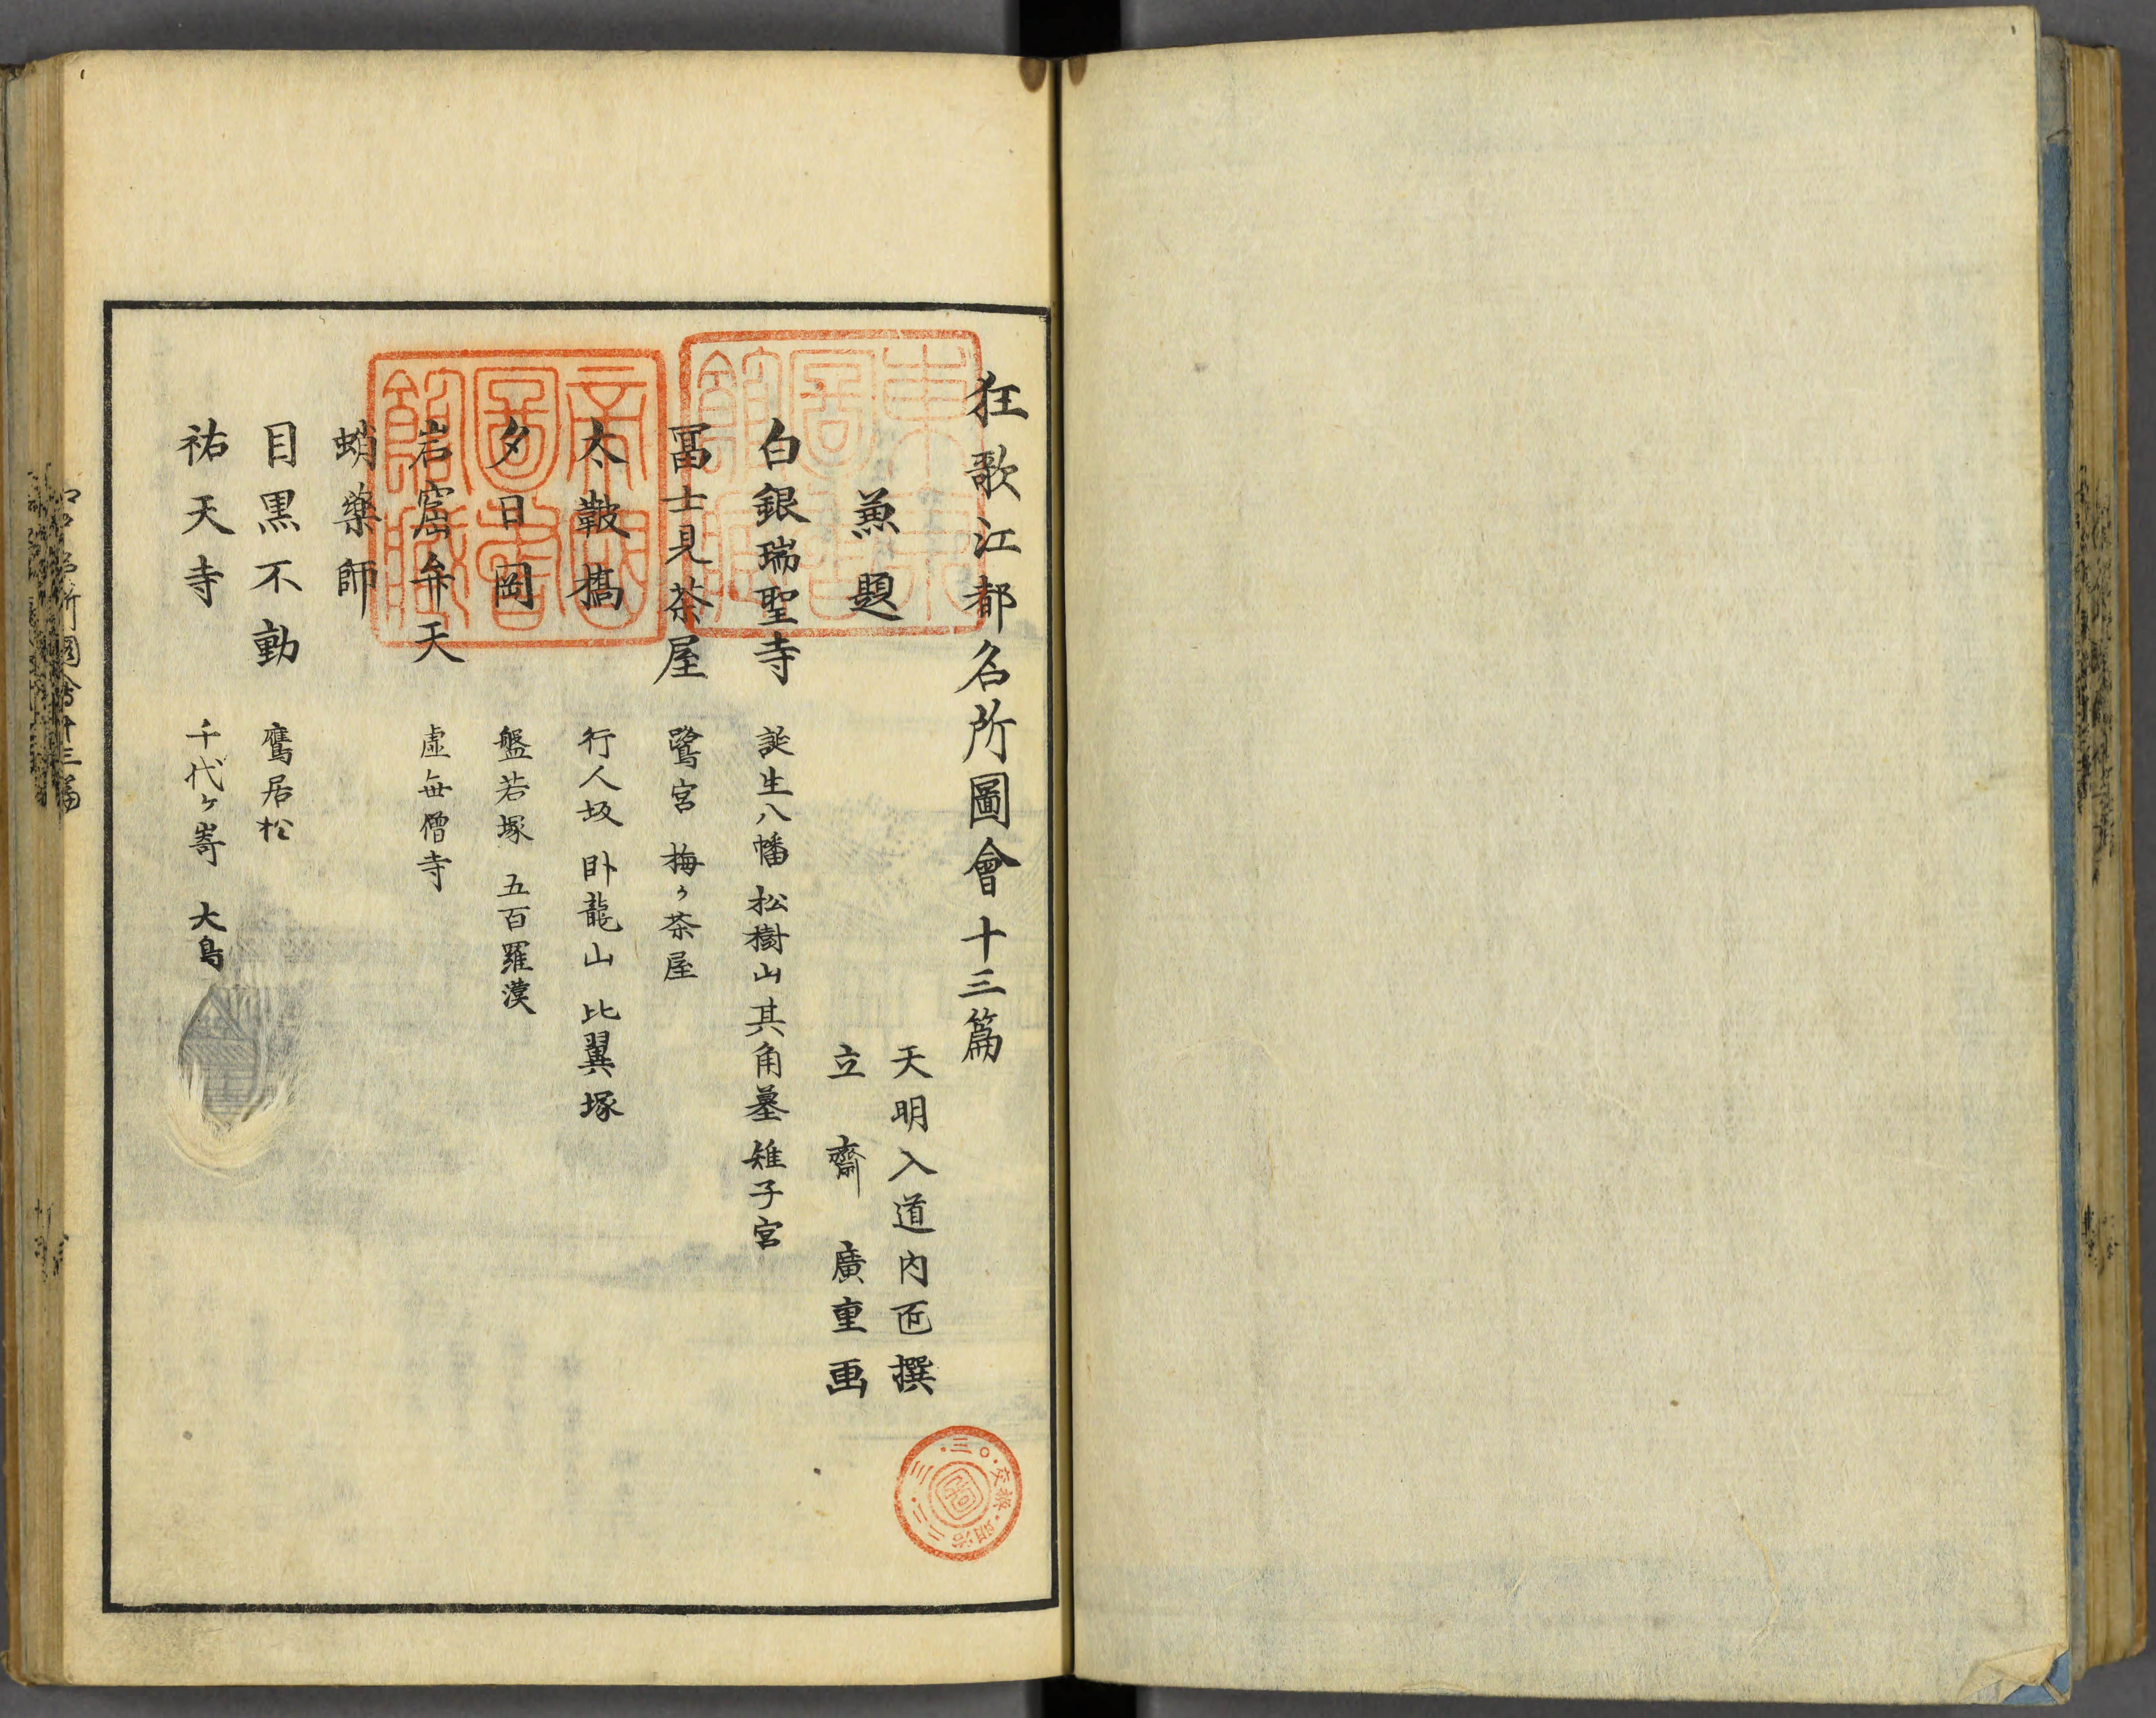 狂歌江都名所圖會十三篇
天明入道内匠撰
兼題
立齋廣重画
白銀瑞聖寺 誕生八幡 松樹山 其角墓 雉子宮
冨士見茶屋 鷺宮 梅ヶ茶屋
太鞁橋 行人坂 卧龍山 比翼塚
夕日岡 盤若塚 五百羅漢
岩窟弁天 虚無僧寺
蛸藥師
目黒不動 鷹居松
祐天寺 千代ヶ嵜 大鳥
東京圖書館藏
帝國圖書館藏
圖
明治三二・三・三〇・交換